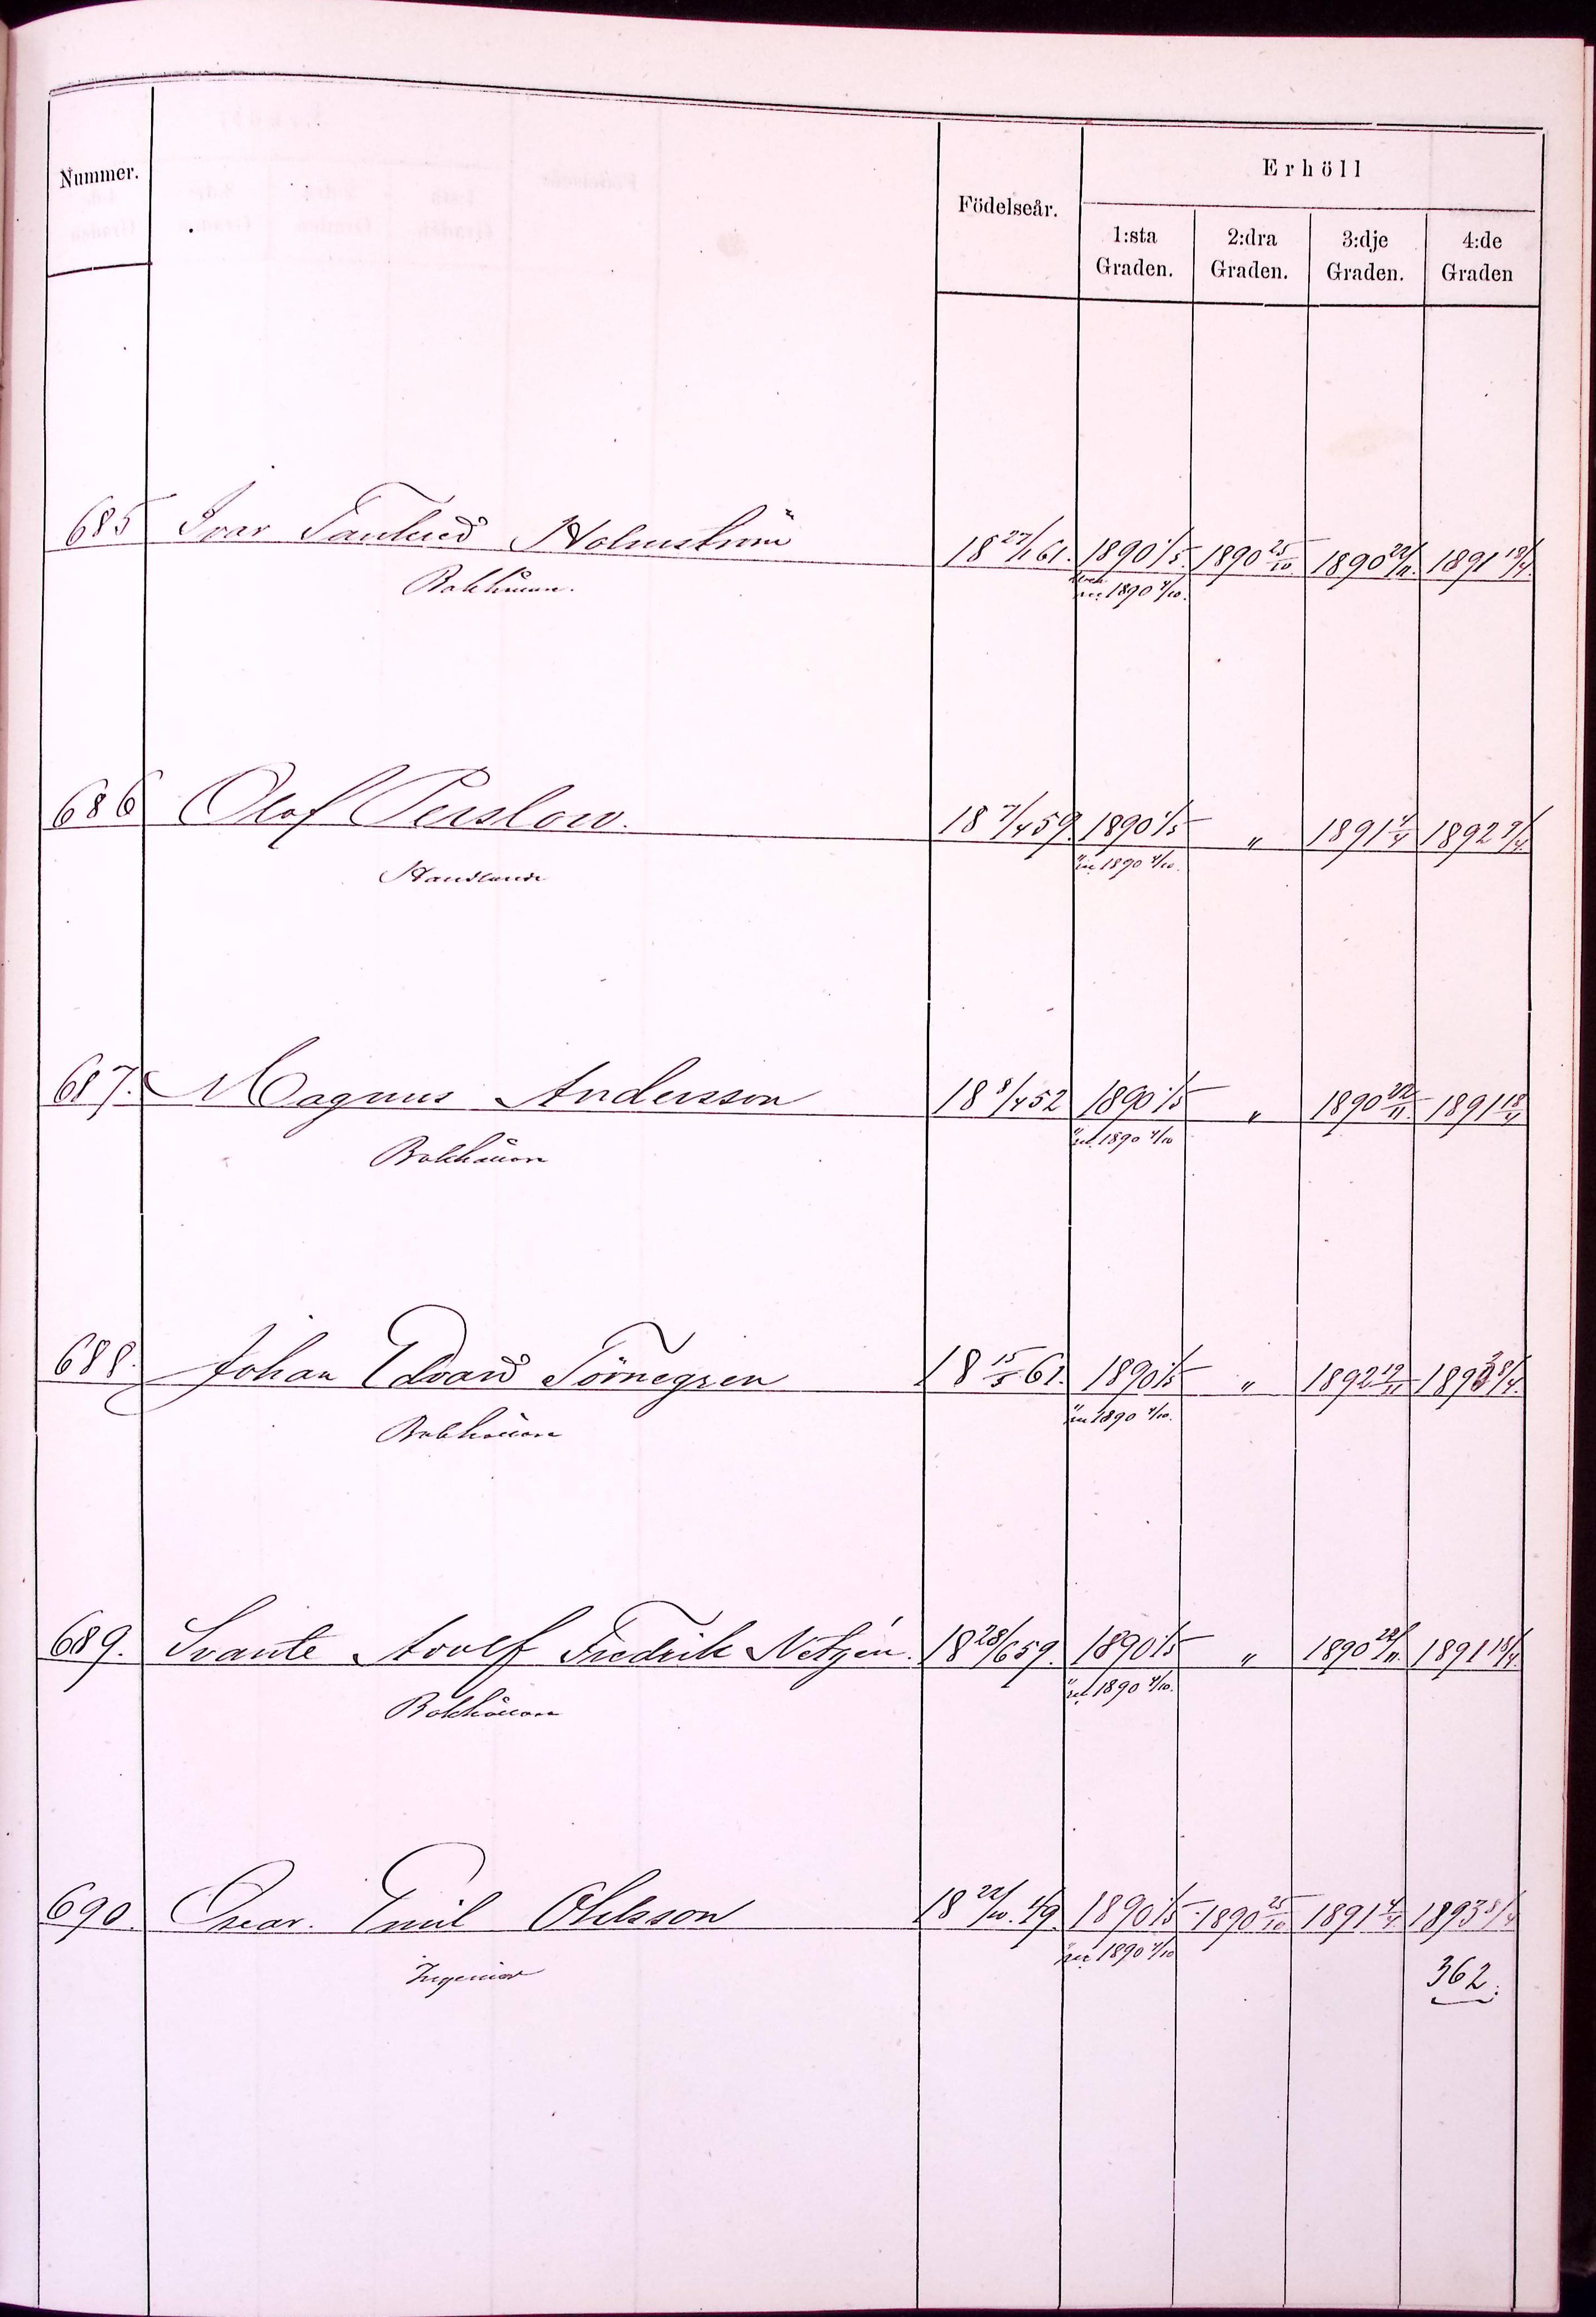 Nummer.
Födelseår.
Erhöll
1:sta Graden.
2:dra Graden.
3:dje Graden.
4:de Graden
685 Ivar Tankred Holmström 18 27/1 61. 1890 1/5 1890 25/10. 1890 22/11. 1891 18/4.
Bokhållare. 1890 4/10.
686 Olof Perslow. 18 7/4 59. 1890 1/5 " 1891 4/4 1892 9/4.
Handlande 1890 4/10.
687. Magnus Andersson 18 8/4 52 1890 1/5 " 1890 22/11. 1891 18/4
Bokhållare 1890 4/10
688. Johan Edvard Törnegren 18 15/5 61. 1890 1/5 " 1892 12/11 1893 8/4.
Bokhållare 1890 4/10.
689. Svante Adolf Fredrik Netzén. 18 28/6 59. 1890 1/5 " 1890 22/11. 1891 18/4.
Bokhållare 1890 4/10.
690. Oscar. Emil Ohlsson 18 22/10. 49. 1890 1/5 1890 25/10 1891 4/4. 1893 8/4
Ingeniör 1890 4/10
362.